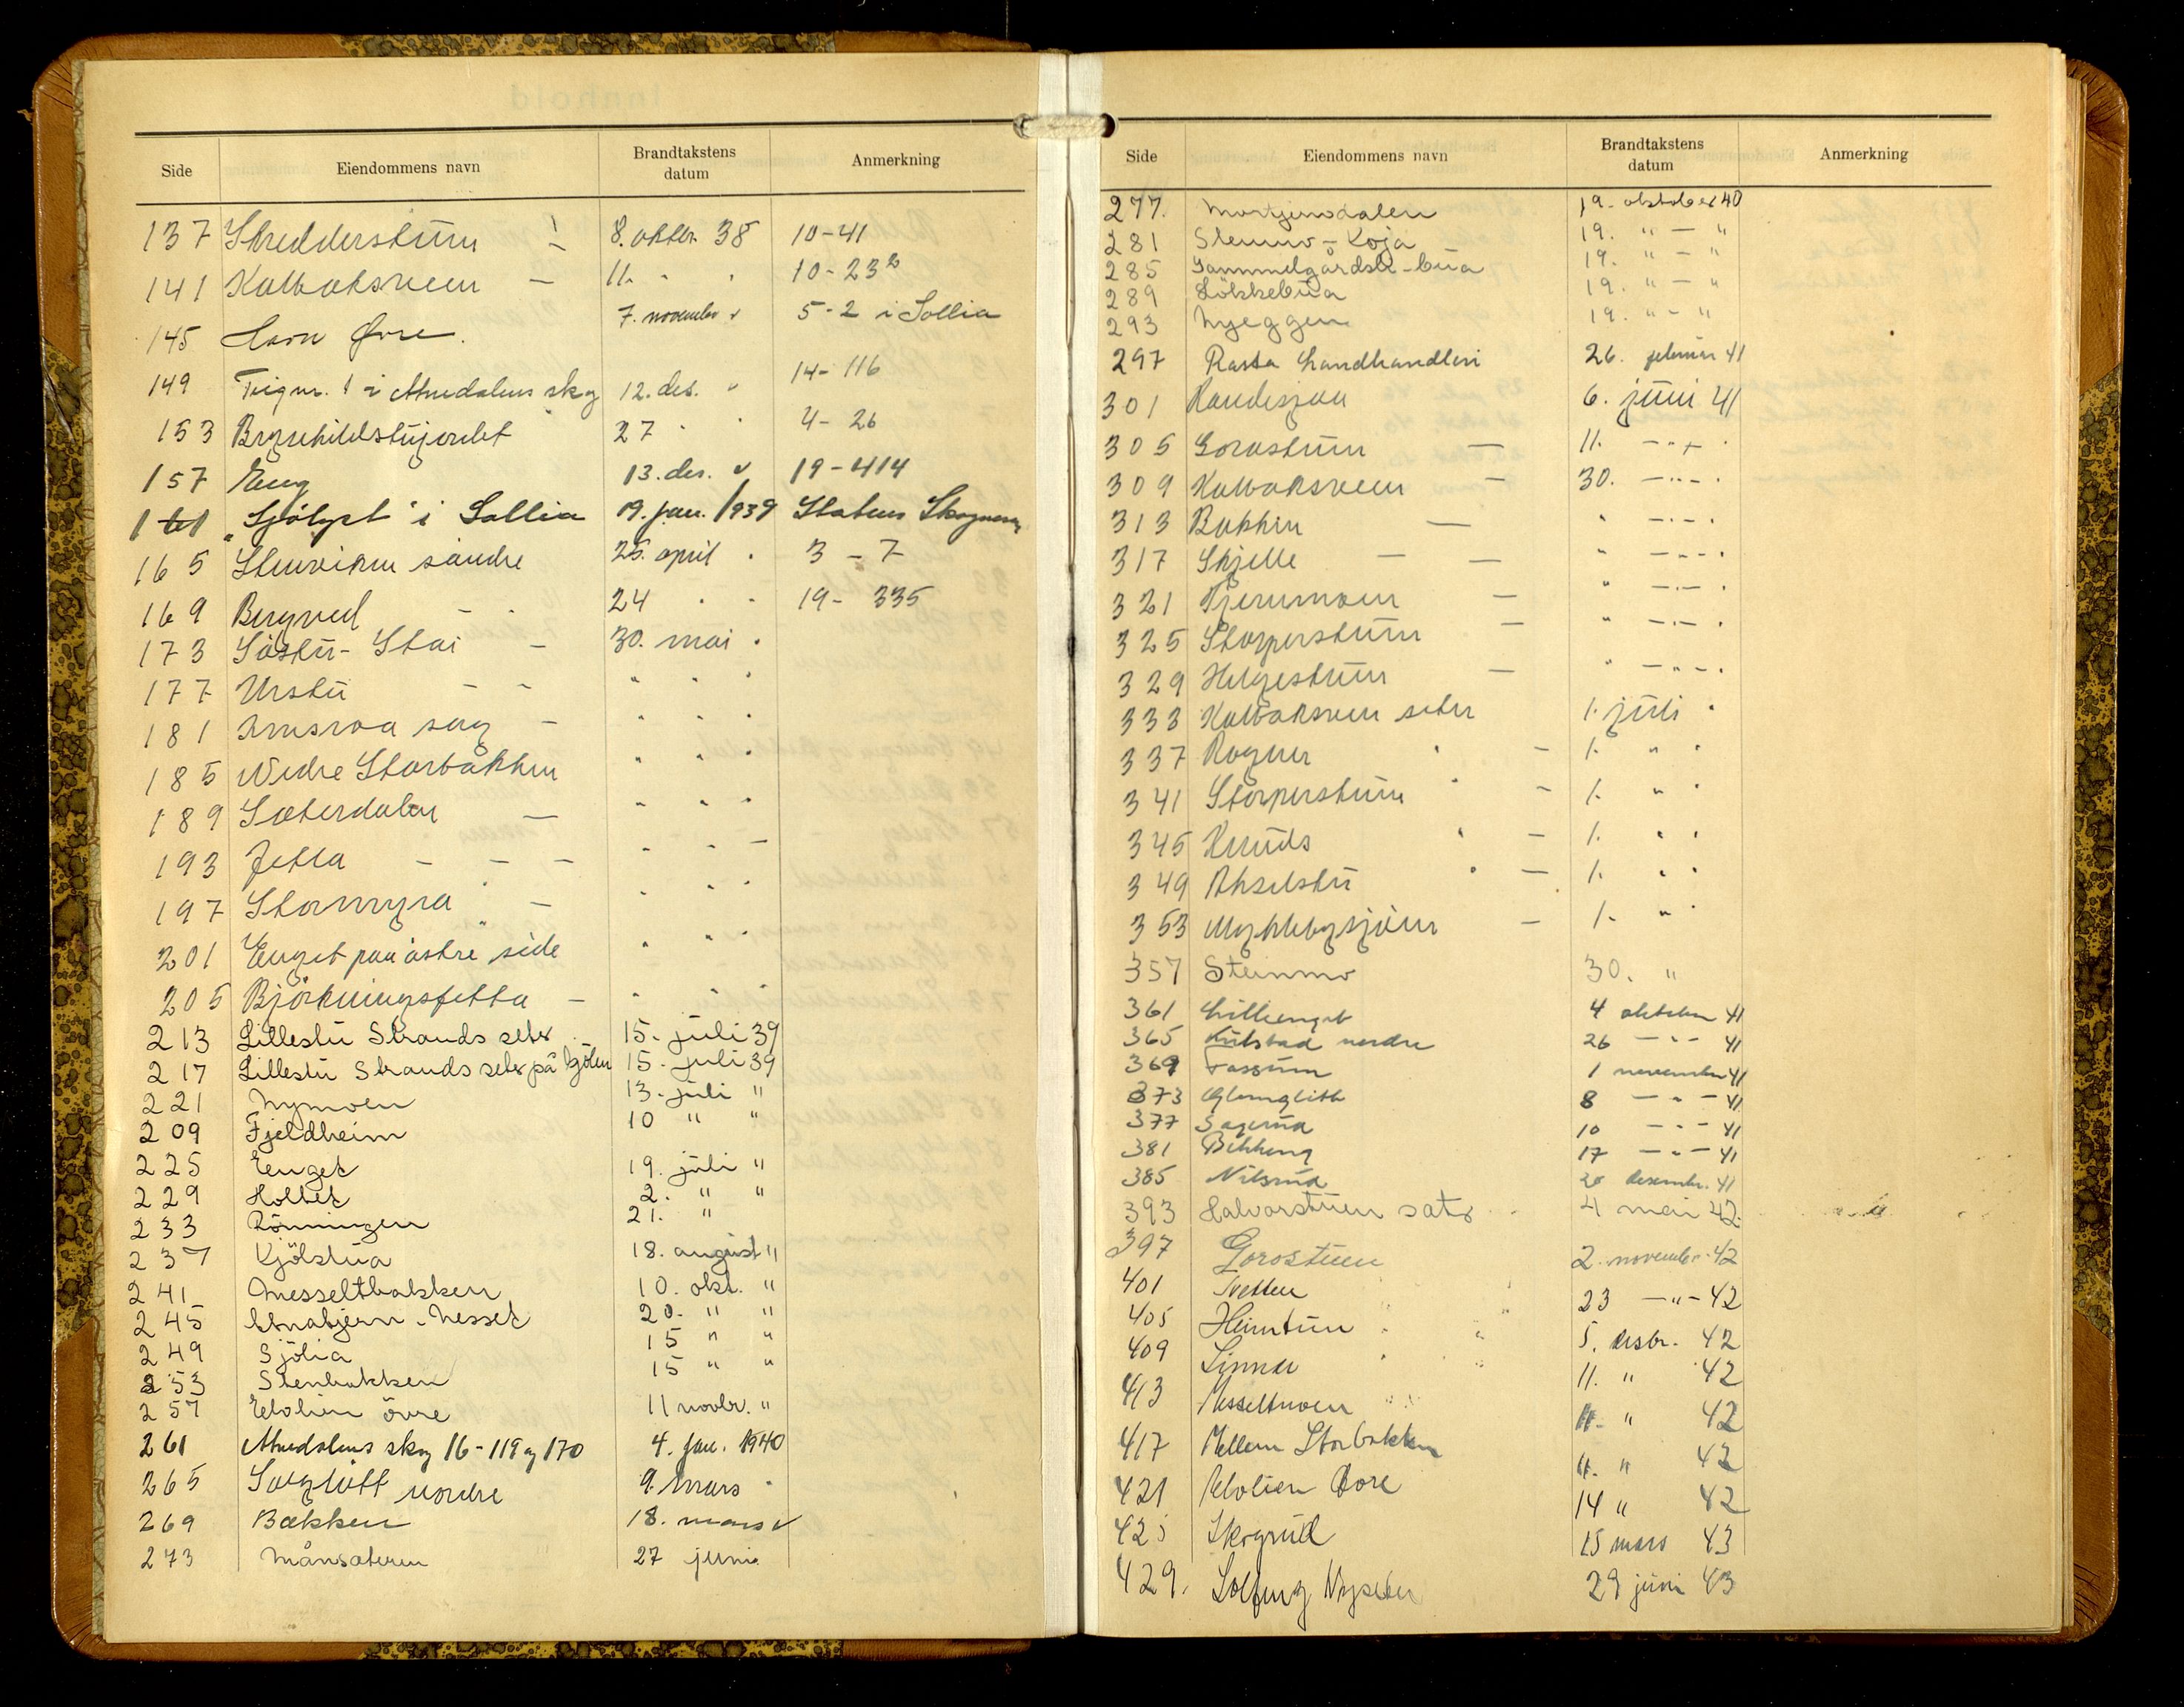 Side Eiendommens navn Brandtakstens datum Anmerkning
137 Skredderstuen 8. oktbr. 38 10-41
141 Kolbaksveen — 11. " " 10-23
145 Horn Øvre. 7. november " 5-2 i Sollia
149 Teig nr. 1 i Atnedalens skog 12. des. " 14-116
153 Brynhildstujordet 27 " " 4-26
157 Eng 13. des. " 19-414
161 "Sjölyst" i Sollia 19. jan. 1939 Statens Skogvesen
165 Stenviken söndre 25. april " 3-7
169 Bergved — 24 " " 19-335
173 Söstu-Stai — 30. mai "
177 Urstu — — " " "
181 Imsroa sag — " " "
185 Nedre Storbakken " " "
189 Sæterdalen — " " "
193 Jetta — — — " " —
197 Stormyra — " " "
201 Enget paa östre side " " "
205 Björkningsfetta — " " "
213 Lillestu Strands seter 15. juli 39
217 Lillestu Strands seter på Kjölen 15. juli 39
221 Nymoen 13. juli "
209 Fjeldheim 10 " "
225 Enget 19. juli "
229 Holtet 2. " "
233 Rönningen 21. "
237 Kjölstua 18. august "
241 Messeltbakken 10. okt. "
245 Atnabjern-Nesset 20. " "
249 Sjölia 15 " "
253 Stenbakken 15 " "
257 Evolien övre 11 novbr. "
261 Atnedalens skog 16-119 og 170 4. jan. 1940
265 nordre 9. mars "
269 Bakken 18. mars "
273 Månsæteren 27 juni
Side Eiendommens navn Brandtakstens datum Anmerkning
277. 19. oktober 40
281 Stenmo-Koja 19. " — "
285 Gammelgårdsli-bua 19. " — "
289 Lökkebua 19. " — "
293 Nyeggen 19. " — "
297 Rasta Landhandleri 26. februar 41
301 6. juni 41
305 Gorostuen — 11. — " — "
309 Kolbaksveen — 30. — " — "
313 Bakken — " — " — "
317 Skjelle — — " — " — "
321 Tjernmoen — " — " — "
325 Storperstuen — " — " — "
329 Helgestuen — " — " — "
333 Kolbaksveen seter 1. juli "
337 Rogner " — 1. " "
341 Storperstuen " — 1. " "
345 Knuds " — 1. " "
349 Akselstu " — 1. " "
353 Myklebysjöen — 1. " "
357 Steinmo 30. "
361 Lillenget 4 oktober 41
365 nordre 26 — " — 41
369 Fossum 1 november 41
373 Glomglitt 8 — " — 41
377 Sagerud 10 — " — 41
381 Bekkeng 17 — " — 41
385 Nilsrud desembr. 41
393 Halvorstuen sæter 4 mai 42.
397 Gorostuen 2. november 42
401 Svetten 23 — " — 42
405 Heimtun 5. desbr. 42
409 11. " 42
413 Messeltmoen 11. " 42
417 Mellem Storbakken 11. " 42
421 Evolien Øvre 14 " 42
425 Skogrud 15 mars 43
429. Solfeng Nyseter 29 juni 43